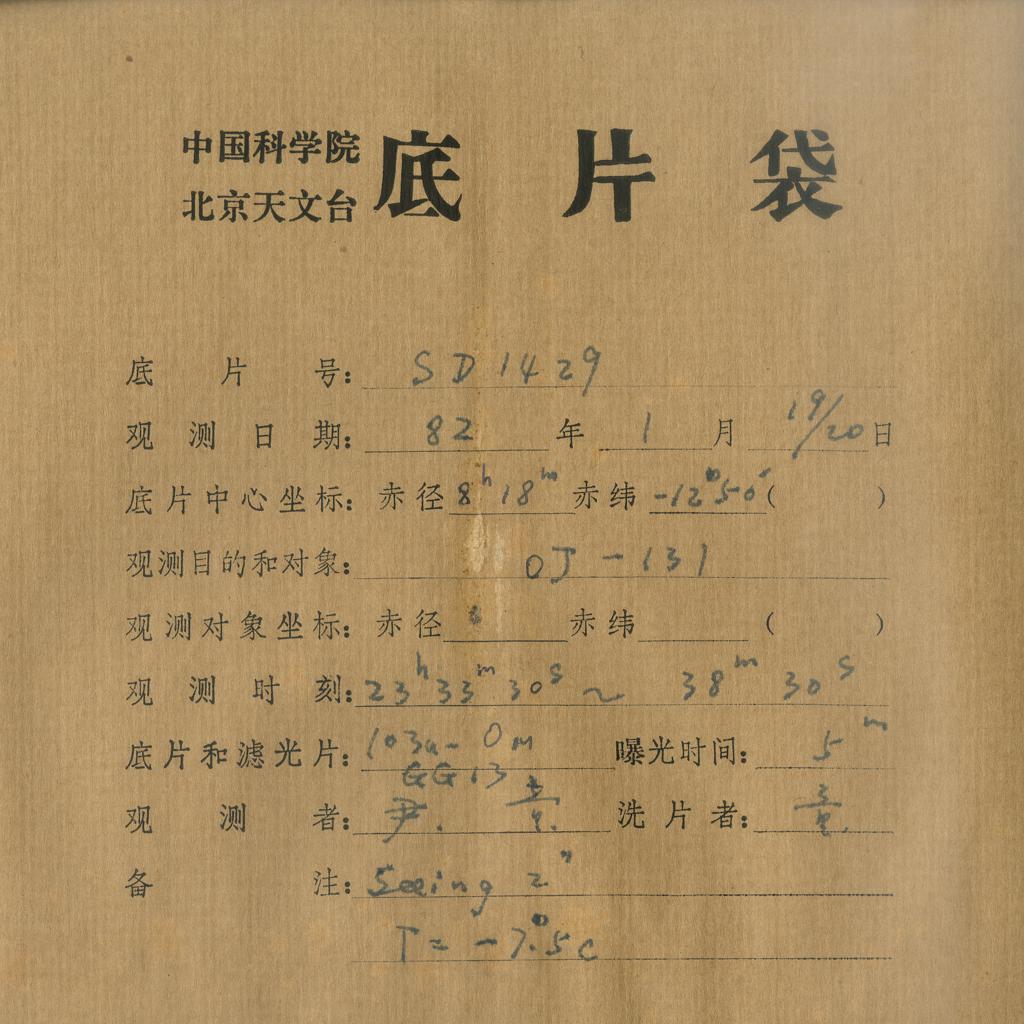 中国科学院
北京天文台 底片袋
底片号: SD1429
观测日期: 82 年 1 月 19/20 日
底片中心坐标: 赤径 8h 18m 赤纬 -12°50′ ( )
观测目的和对象: OJ-131
观测对象坐标: 赤径 赤纬 ( )
观测时刻: 23h 33m 30s ~ 38m 30s
底片和滤光片: 103a-O 曝光时间: 5m
GG13
观测者: 尹. 洗片者:
备注: Seeing 2″
T = -7.°5 C